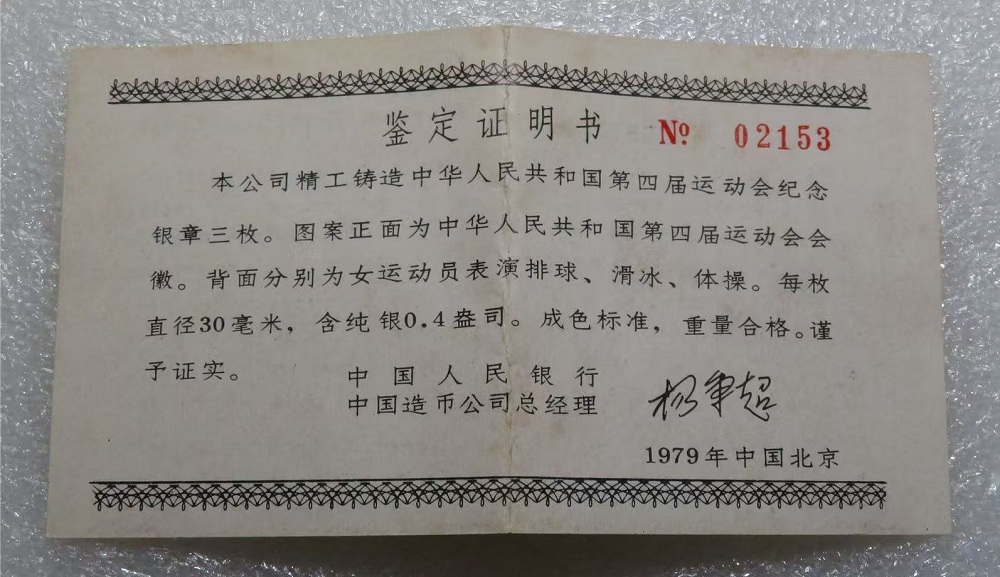 鉴定证明书 № 02153
本公司精工铸造中华人民共和国第四届运动会纪念
银章三枚。图案正面为中华人民共和国第四届运动会会
徽。背面分别为女运动员表演排球、滑冰、体操。每枚
直径30毫米，含纯银0.4盎司。成色标准，重量合格。谨
予证实。
中国人民银行
中国造币公司总经理 杨秉超
1979年中国北京